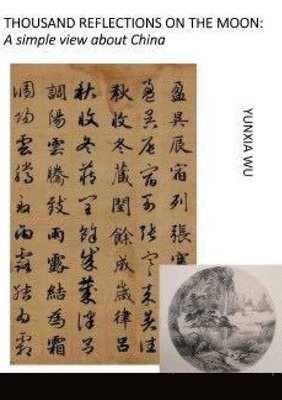 THOUSAND REFLECTIONS ON THE MOON:
A simple view about China
盈昃辰宿列張寒
盈昃辰宿列張寒來暑往
秋收冬藏閏餘成歲律呂
秋收冬藏閏餘成歲律呂
調陽雲騰致雨露結為霜
調陽雲騰致雨露結為霜
YUNXIA WU